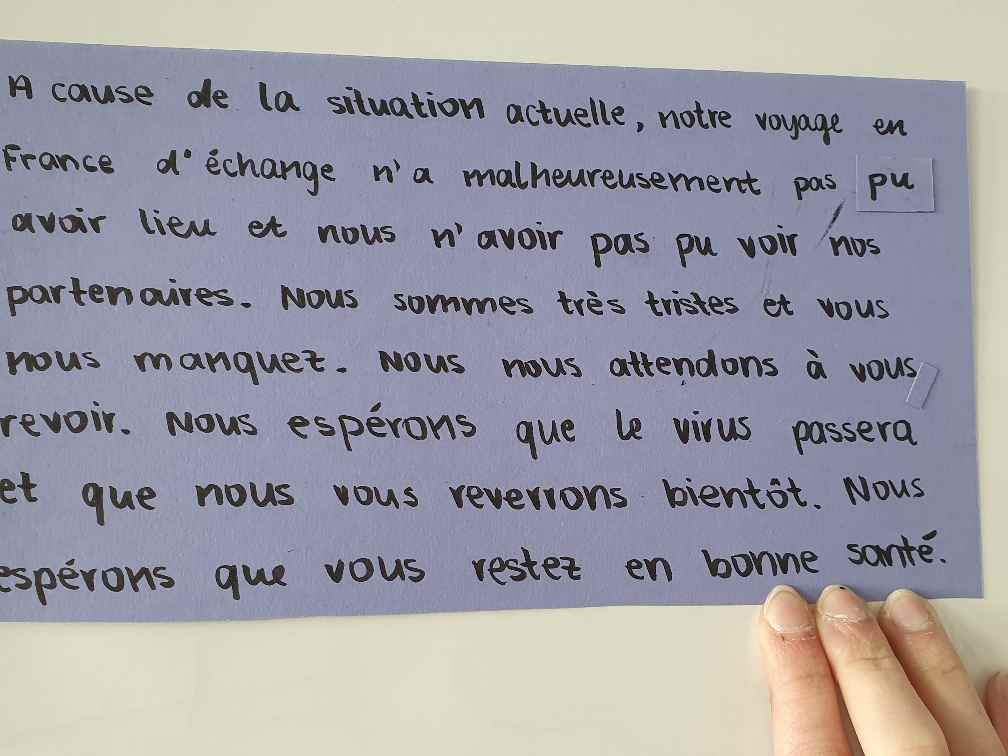 A cause de la situation actuelle, notre voyage en
France d'échange n'a malheureusement pas pu
avoir lieu et nous n'avoir pas pu voir nos
partenaires. Nous sommes très tristes et vous
nous manquez. Nous nous attendons à vous
revoir. Nous espérons que le virus passera
et que nous vous reverrons bientôt. Nous
espérons que vous restez en bonne santé.